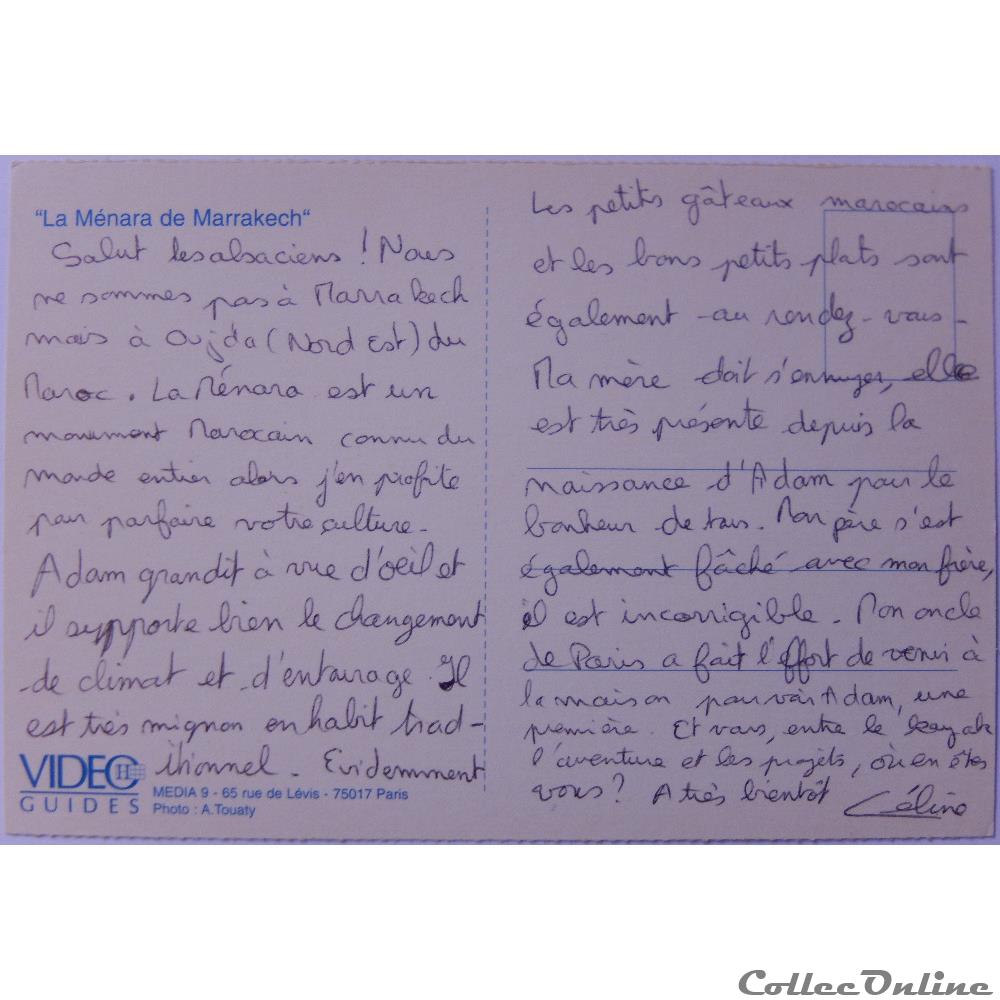 "La Ménara de Marrakech"
Salut les alsaciens ! Nous
ne sommes pas à Marrakech
mais à Oujda (Nord Est) du
Maroc. La Ménara est un
monument Marocain connu du
monde entier alors j'en profite
pour parfaire votre culture.
Adam grandit à vue d'oeil et
il supporte bien le changement
de climat et d'entourage. Il
est très mignon en habit trad-
itionnel. Evidemment
VIDEO GUIDES
MEDIA 9 - 65 rue de Lévis - 75017 Paris
Photo : A.Touaty
Les petits gâteaux marocains
et les bons petits plats sont
également au rendez-vous.
Ma mère doit s'ennuyer, elle
est très présente depuis la
naissance d'Adam pour le
bonheur de tous. Mon père s'est
également fâché avec mon frère,
il est incorrigible. Mon oncle
de Paris a fait l'effort de venir à
la maison pour voir Adam, une
première. Et vous, entre le kayak
l'aventure et les projets, où en êtes
vous? A très bientôt Céline
CollecOnline